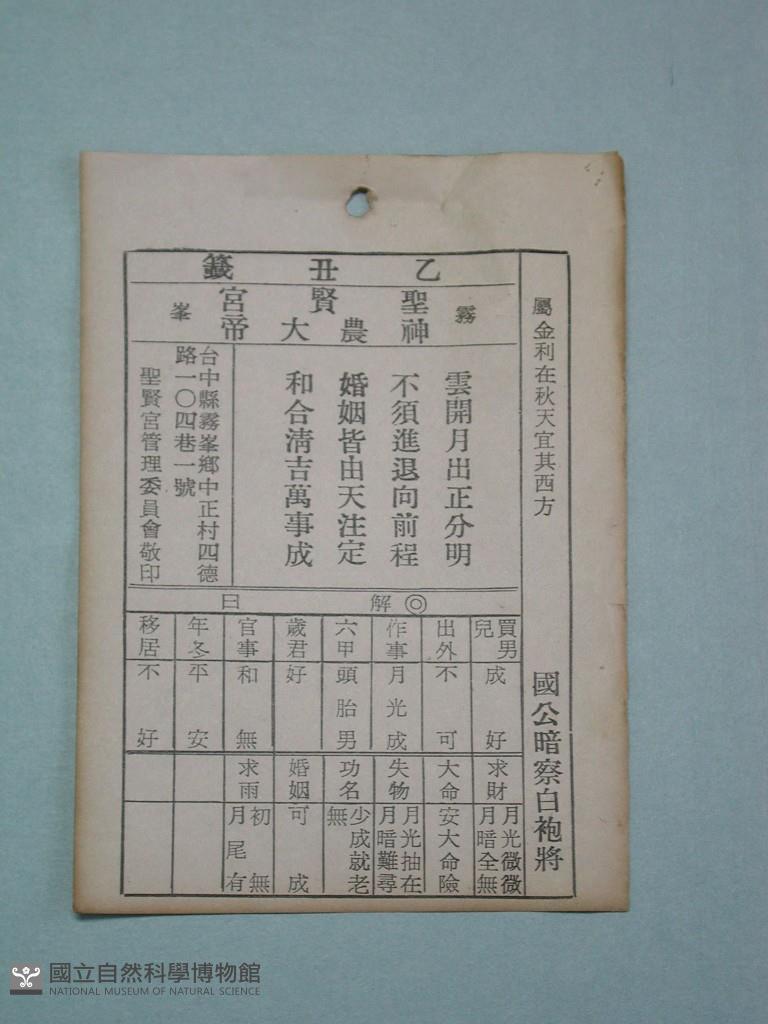 屬金利在秋天宜其西方
國公暗察白袍將
乙丑籤
霧峯
聖賢宮
神農大帝
雲開月出正分明
不須進退向前程
婚姻皆由天注定
和合清吉萬事成
台中縣霧峯鄉中正村四德
路一〇四巷一號
聖賢宮管理委員會敬印
◎解曰
買男兒 成好
出外 不可
作事 月光成
六甲 頭胎男
歲君 好
官事 和無
年冬 平安
移居 不好
求財 月光微微 月暗全無
大命 安大命險
失物 月光抽在 月暗難尋
功名 少成就老無
婚姻 可成
求雨 初無 月尾有
國立自然科學博物館
NATIONAL MUSEUM OF NATURAL SCIENCE